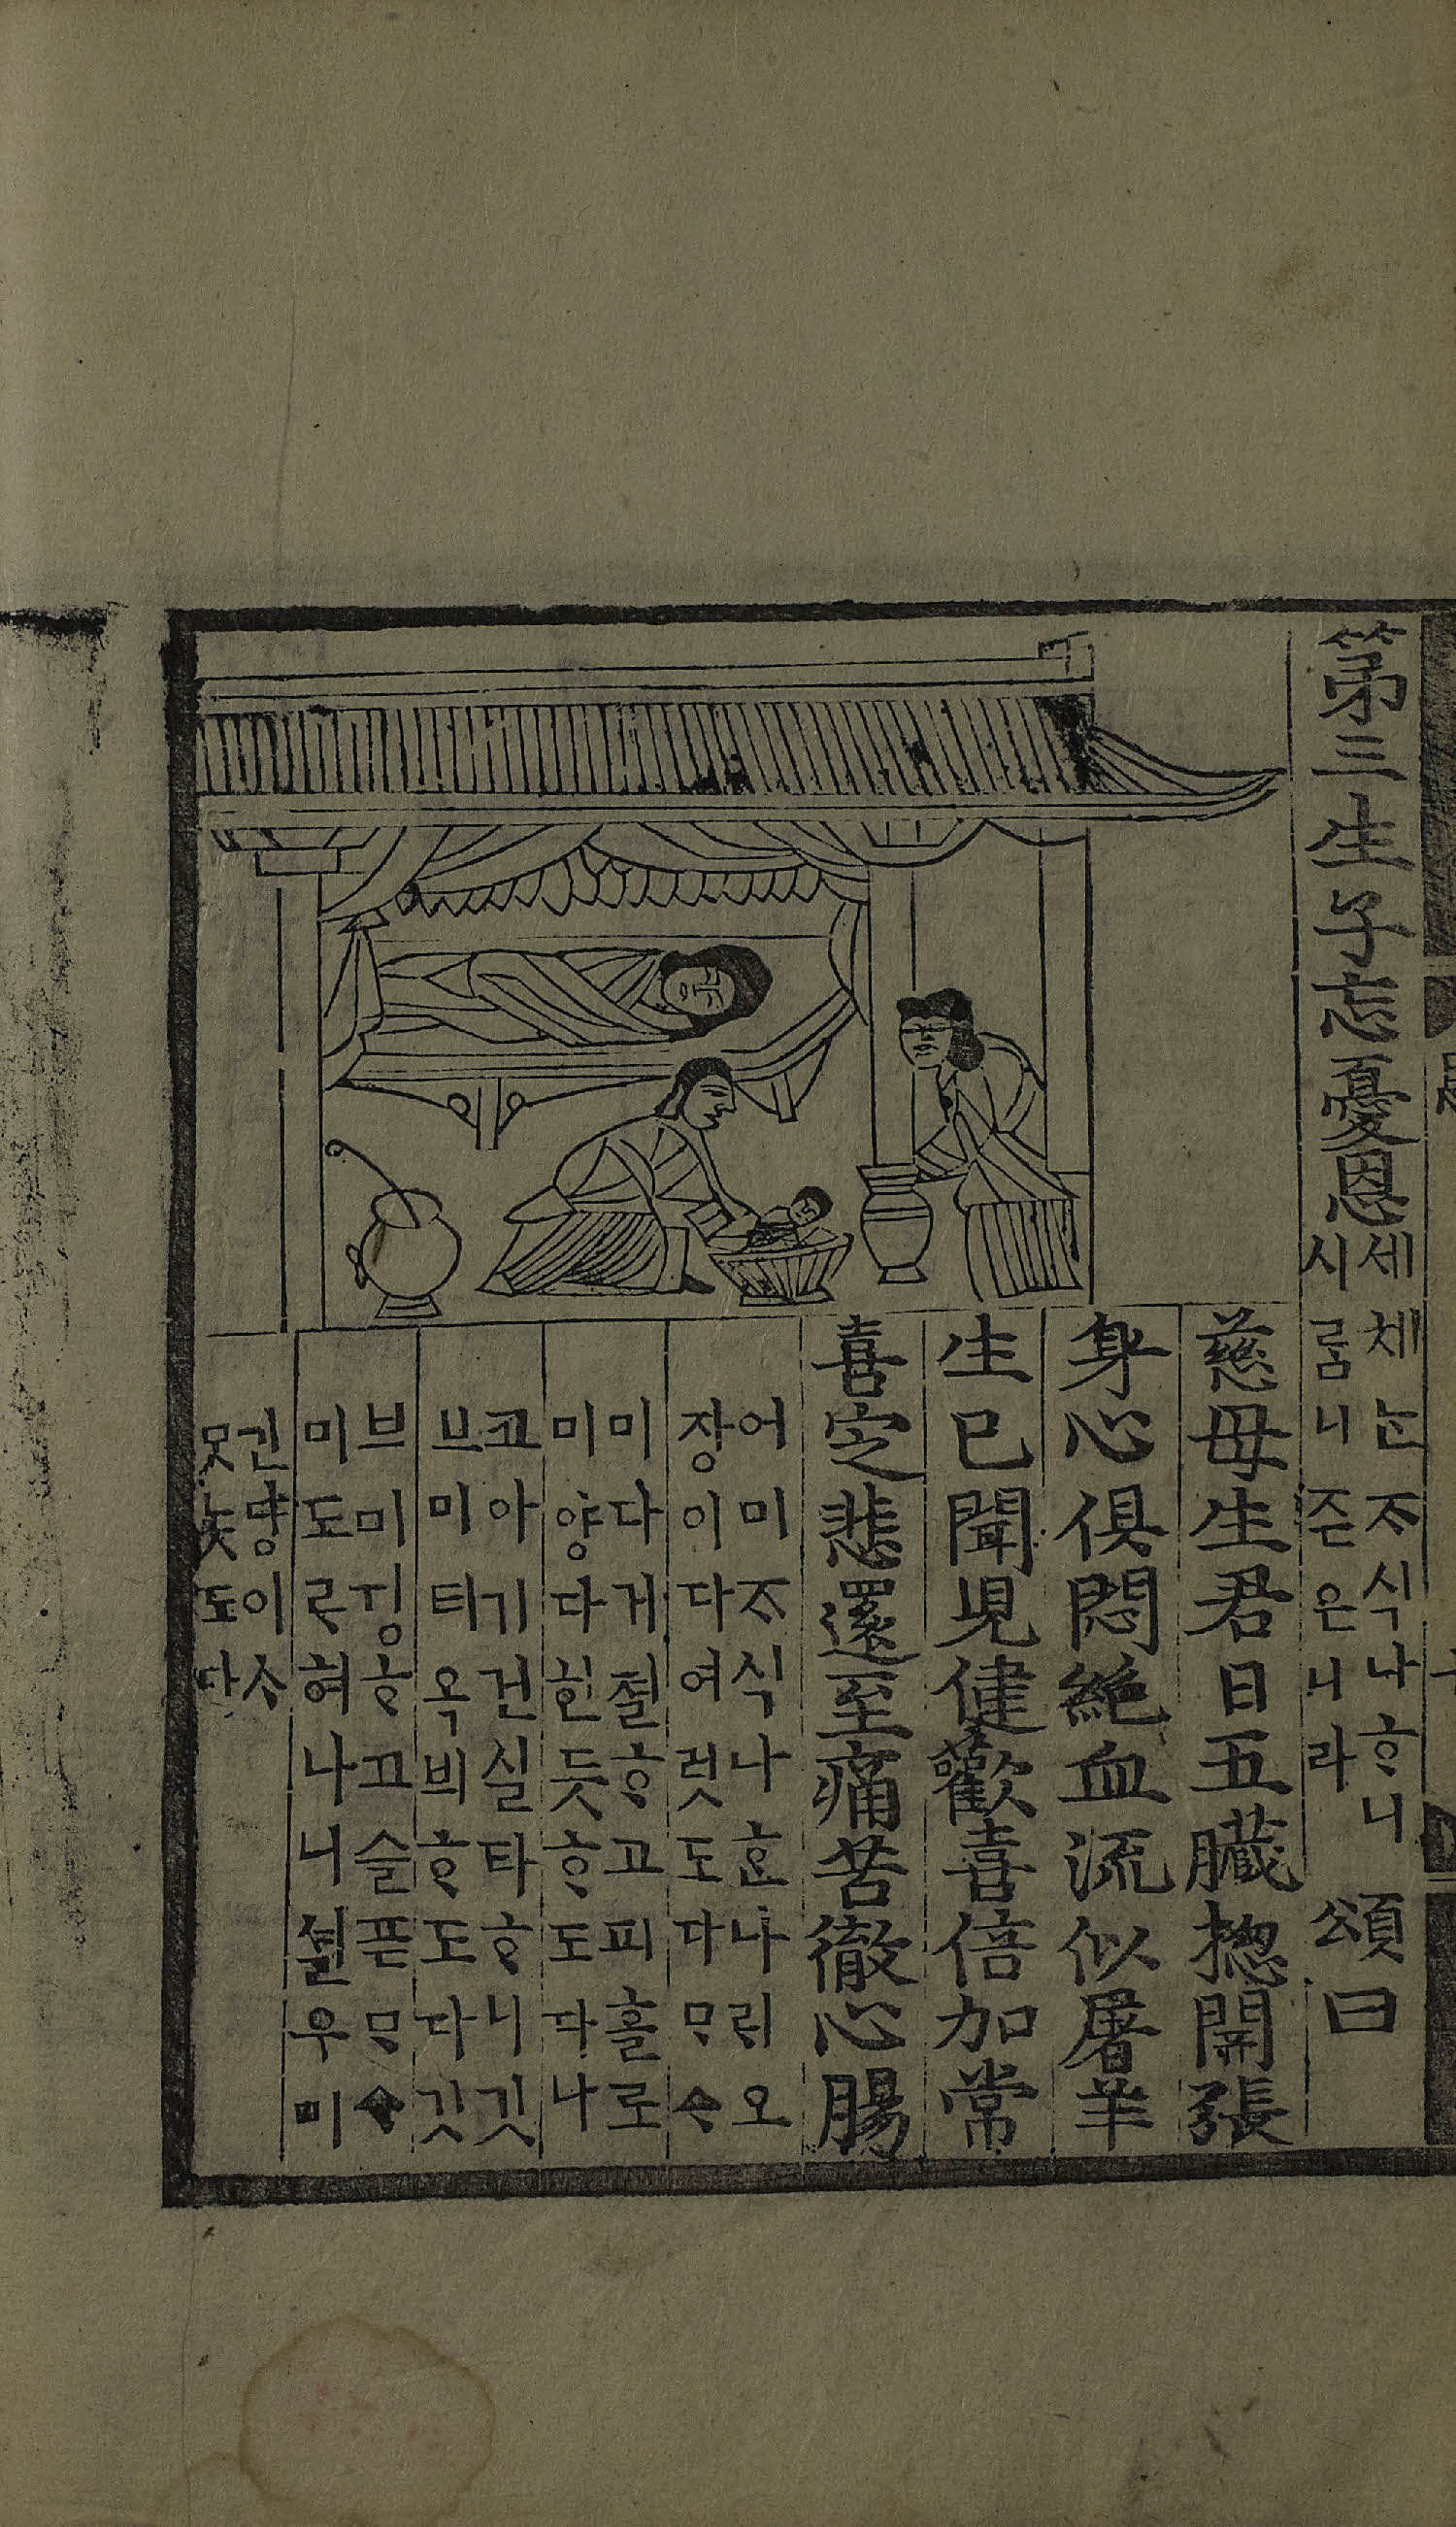 第三生子忘憂恩
세체ᄂᆞᆫᄌᆞ식나ᄒᆞ니
시름니즌은니라
頌曰
慈母生君日五臟揔開張
身心俱悶絶血流似屠羊
生已聞児健歡喜倍加常
喜㝎悲還至痛苦徹心膓
어미ᄌᆞ식나ᄒᆞᆫ나ᄅᆡ오
장이다여럿도다ᄆᆞᅀᆞ
미다게쳘ᄒᆞ고피흘로
미양다힌듯ᄒᆞ도다나
코아기건실타ᄒᆞ니깃
브미티옥븨ᄒᆞ도다깃
브미깅ᄒᆞ고슬픈ᄆᆞᅀᆞ
미도ᄅᆞ혀나니셜우미
도다